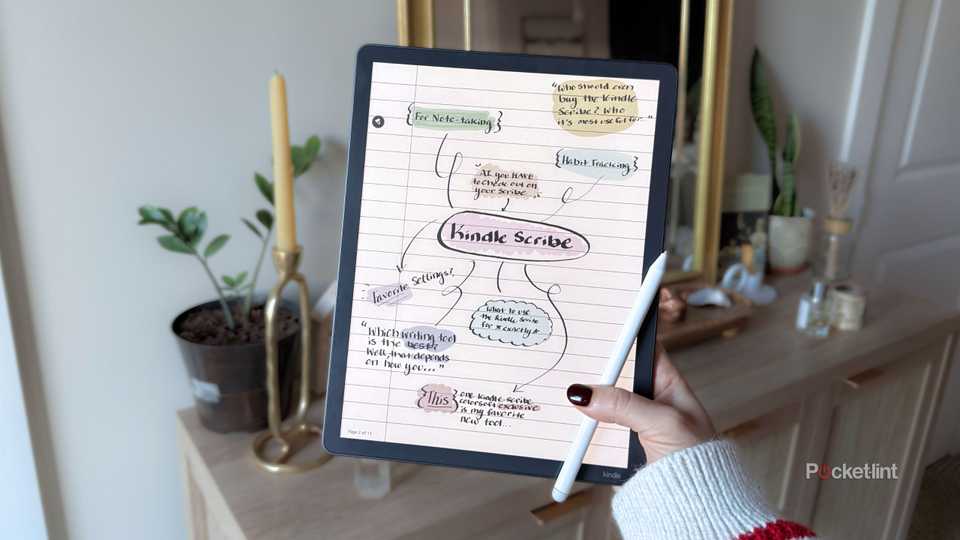 "Who should even
buy the Kindle
Scribe? Who
it's most useful for..."
{For Note-taking}
{Habit Tracking}
"AI you HAVE
to check out on
your Scribe..."
Kindle Scribe
Favorite Settings?
What to use
the Kindle Scribe
for *exactly*
"Which writing tool
is the best?
Well, that depends
on how you..."
{This} one Kindle Scribe
Colorsoft exclusive
is my favorite
new tool...
Page 2 of 11
kindle
Pocketlint